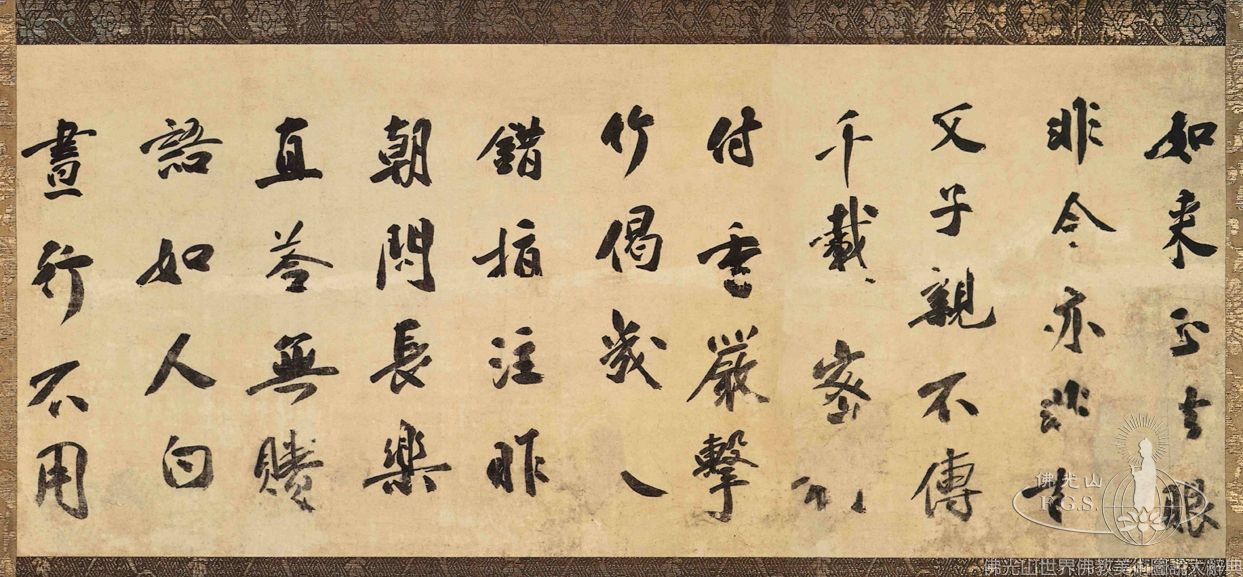 如来正法眼
非今亦非古
父子親不傳
千載密
付香嚴擊
竹偈幾人
錯指注昨
朝問長樂
直答無賺
語如人白
晝行不用
佛光山
F.G.S.
佛光山世界佛教美術圖說大辭典